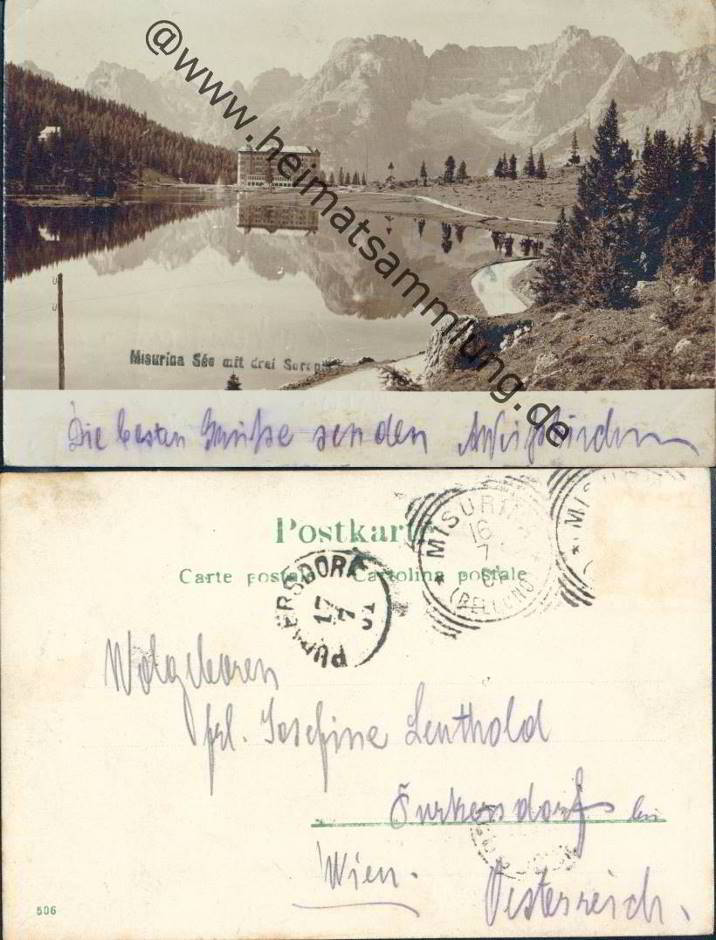 @www.heimatsammlung.de
Misurina See mit drei
Die besten Grüße senden
Postkarte
Carte postale Cartolina postale
MISURINA
16
7
(BELLUNO)
MIS
PURKERSDORF
17
7
01
Wolgeboren
frl. Josefine Leuthold
Purkersdorf bei
Wien.
Oesterreich.
506